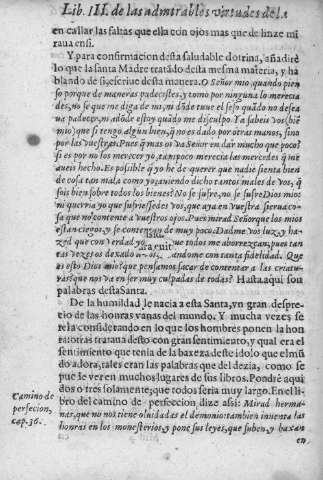 Lib. III. de las admirables virtudes de la
en callar las faltas que ella con ojos mas que de linze mi
raua en si.
Y para confirmacion desta saludable dotrina, añadirè
lo que la santa Madre tratãdo desta mesma materia, y ha
blando de si, escriue desta manera. O Señor mio, quando pien
so porque de maneras padecistes, y como por ninguna lo merecia
des, no se que me diga de mi, ni dõde tuue el seso quãdo no desea
ua padecer, ni adõde estoy quãdo me disculpo. Ya sabeis vos (biẽ
mio) que si tengo algun bien, q̃ no es dado por otras manos, sino
por las vuestras. Pues q̃ mas os va Señor en dar mucho que poco?
si es por no los merecer yo, tampoco merecia las mercedes q̃ me
aueis hecho. Es possible q̃ yo he de querer que nadie sienta bien
de cosa tan mala como yo, auiendo dicho tantos males de vos, q̃
sois bien sobre todos los bienes? No se sufre, no se sufre Dios mio:
ni querria yo que sufriessedes vos, que aya en vuestra sierua co-
sa que no contente a vuestros ojos. Pues mirad Señor que los mios
estan ciegos, y se contentan de muy poco. Dadme vos luz, y ha-
zed que con verdad que todos me aborrezcan, pues tan
tas vezes os he dexado a vos, amandome con tanta fidelidad. Que
es esto Dios mio? que pensamos sacar de contentar a las criatu-
ras? que nos va en ser muy culpadas de todas? Hasta aqui son
palabras desta Santa.
De la humildad le nacia a esta Santa, vn gran despre-
cio de las honras vanas del mundo. Y mucha vezes se
reia considerando en lo que los hombres ponen la honra
otras trataua desto con gran sentimiento, y qual era el
sentimiento que tenia de la baxeza deste idolo que el mũ
do adora, tales eran las palabras que del dezia, como se
puede ver en muchos lugares de sus libros. Pondrè aqui
dos o tres solamente, que todos seria muy largo. En el li-
bro del camino de perfeccion, dize assi: Mirad herma-
nas, que no nos tiene oluidadas el demonio: tambien inuenta las
honras en los monesterios, y pone sus leyes, que suben, y baxan
en
Camino de
perfecion,
cap. 36.